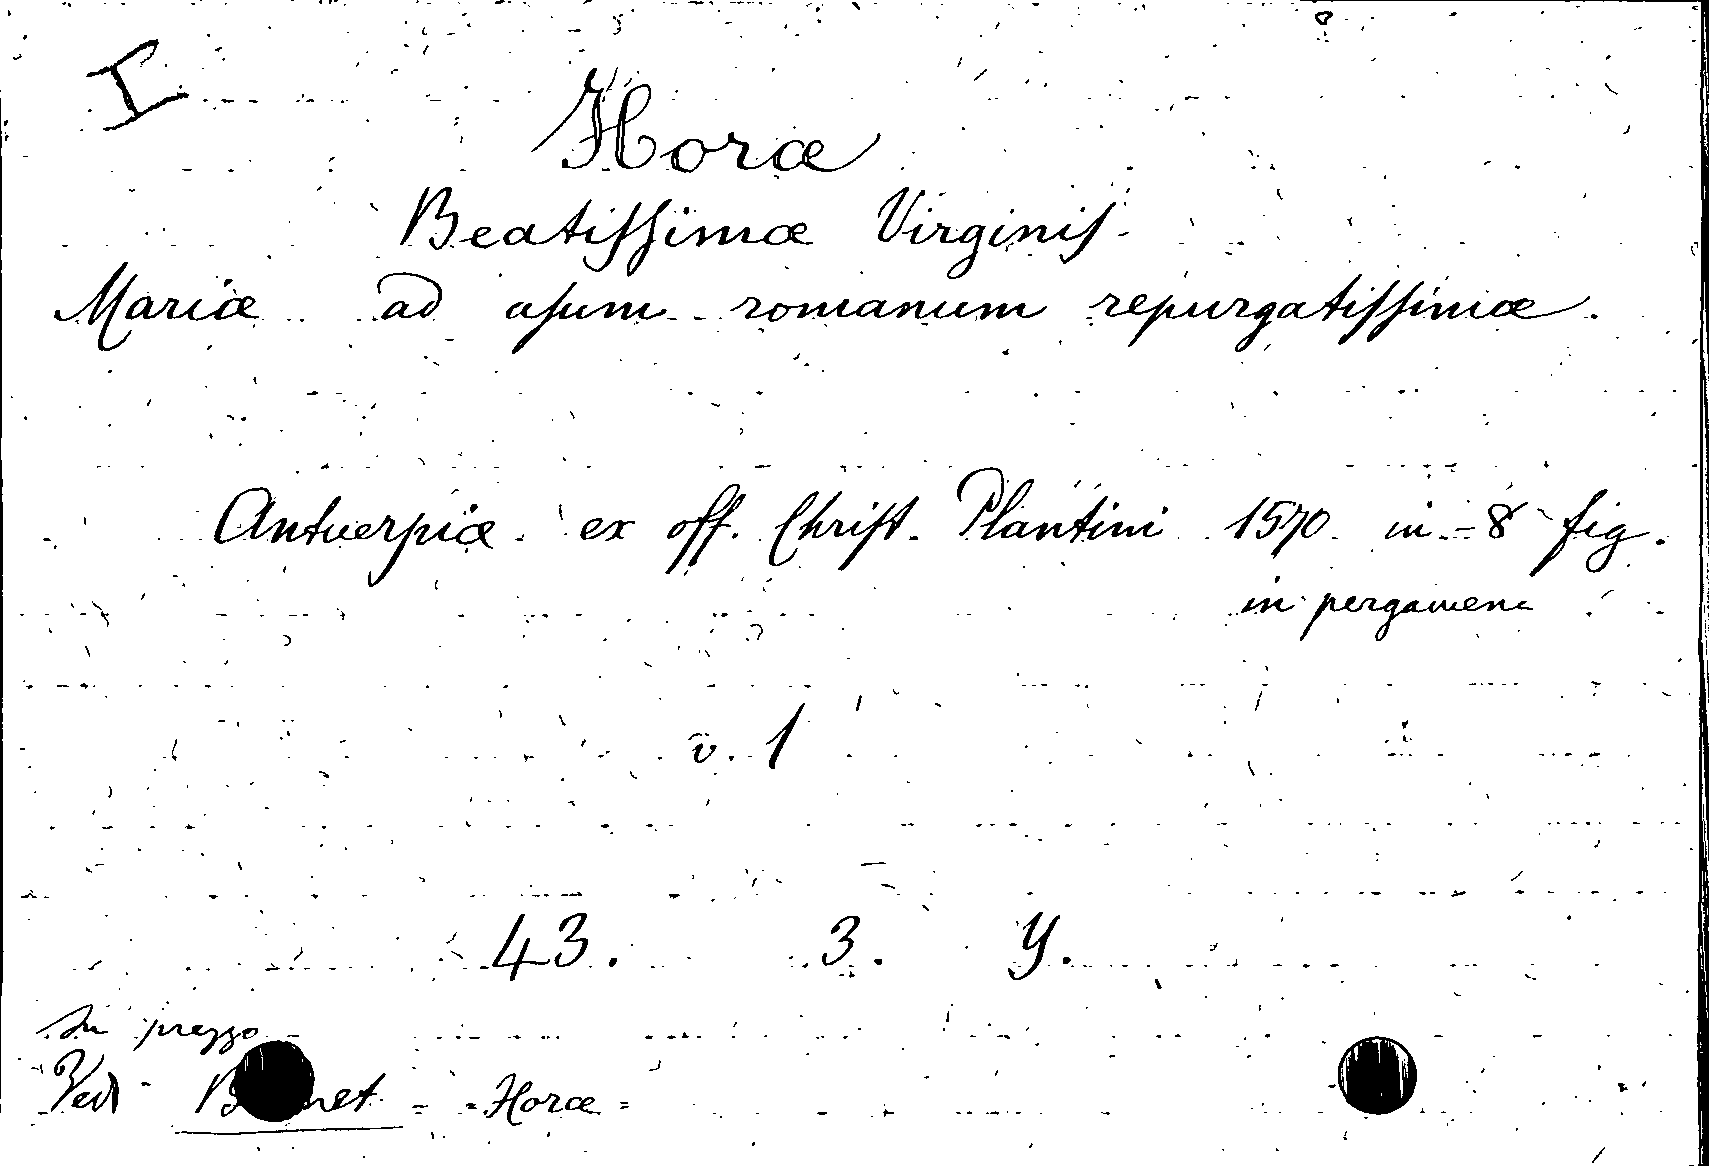 I
Horæ
Beatissimæ Virginis
Mariæ ad usum romanum repurgatissimæ.
Antuerpiæ ex off. Christ. Plantini 1570 in-8 fig.
in pergamena
v. 1
43. 3. Y.
In prezzo
Vedi = Horæ =